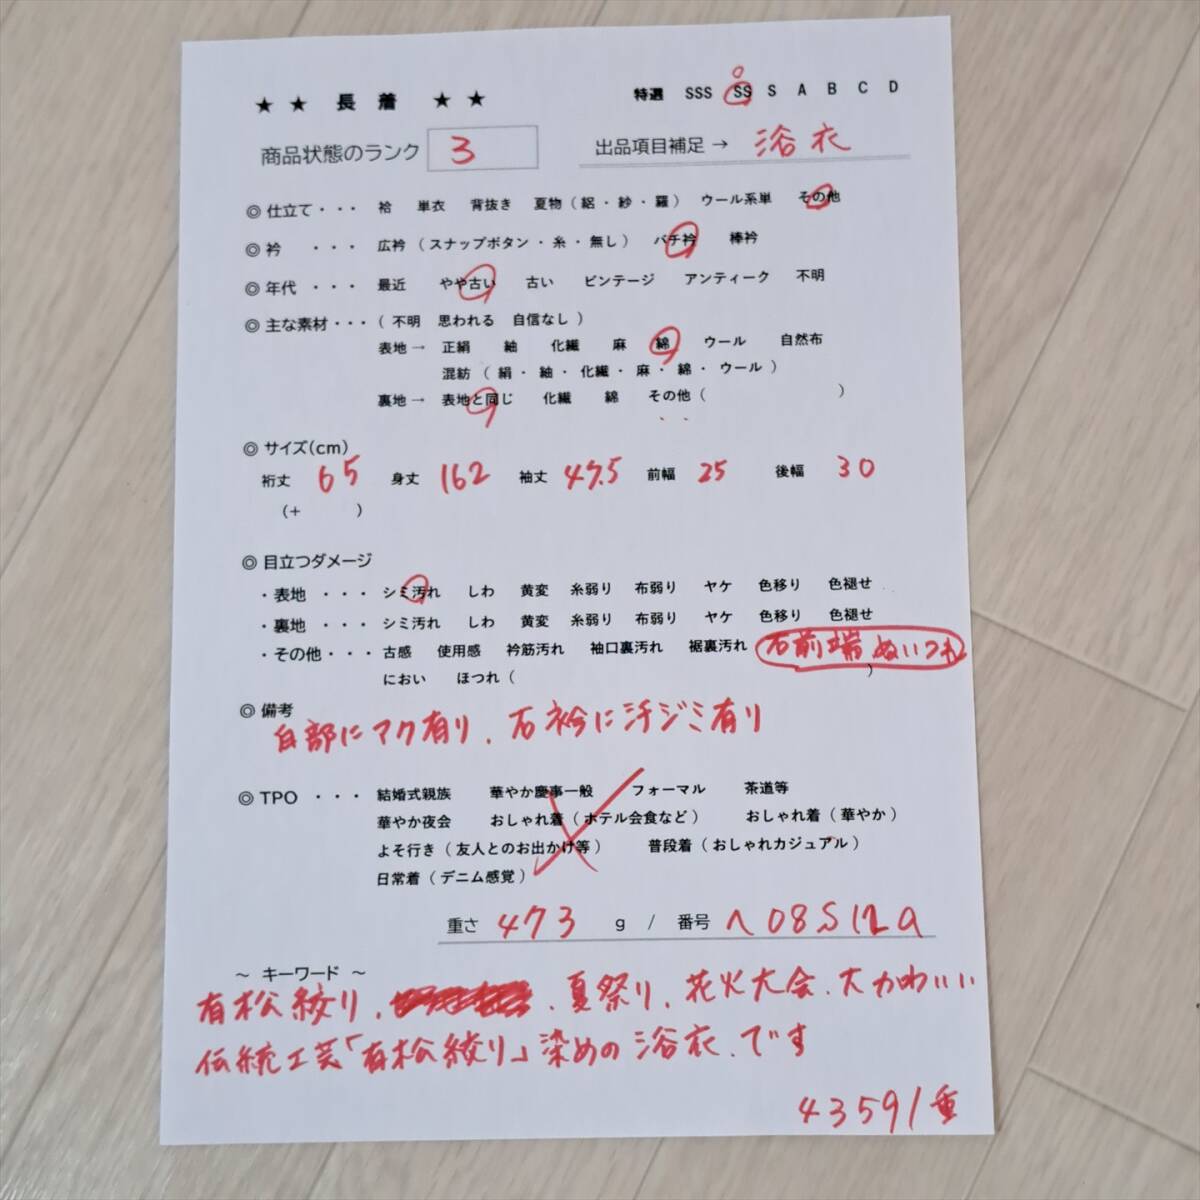 ★ ★ 長 着 ★ ★ 特選 SSS SS S A B C D
商品状態のランク 3 出品項目補足 → 浴衣
◎ 仕立て・・・ 袷 単衣 背抜き 夏物（絽・紗・羅） ウール系単 その他
◎ 衿 ・・・ 広衿（スナップボタン・糸・無し） バチ衿 棒衿
◎ 年代 ・・・ 最近 やや古い 古い ビンテージ アンティーク 不明
◎ 主な素材・・・（不明 思われる 自信なし）
表地→ 正絹 紬 化繊 麻 綿 ウール 自然布
混紡（絹・紬・化繊・麻・綿・ウール）
裏地→ 表地と同じ 化繊 綿 その他（ ）
◎ サイズ(cm)
裄丈 65 身丈 162 袖丈 47.5 前幅 25 後幅 30
（+ ）
◎ 目立つダメージ
・表地 ・・・ シミ汚れ しわ 黄変 糸弱り 布弱り ヤケ 色移り 色褪せ
・裏地 ・・・ シミ汚れ しわ 黄変 糸弱り 布弱り ヤケ 色移り 色褪せ
・その他・・・ 古感 使用感 衿筋汚れ 袖口裏汚れ 裾裏汚れ 右前端ぬいつれ
におい ほつれ（ ）
◎ 備考
白部にアク有り、右衿に汗ジミ有り
◎ TPO ・・・ 結婚式親族 華やか慶事一般 フォーマル 茶道等
華やか夜会 おしゃれ着（ホテル会食など） おしゃれ着（華やか）
よそ行き（友人とのお出かけ等） 普段着（おしゃれカジュアル）
日常着（デニム感覚）
重さ 473 g / 番号
～ キーワード ～
有松絞り、夏祭り、花火大会、大かわいい
伝統工芸「有松絞り」染めの浴衣、です
43591重